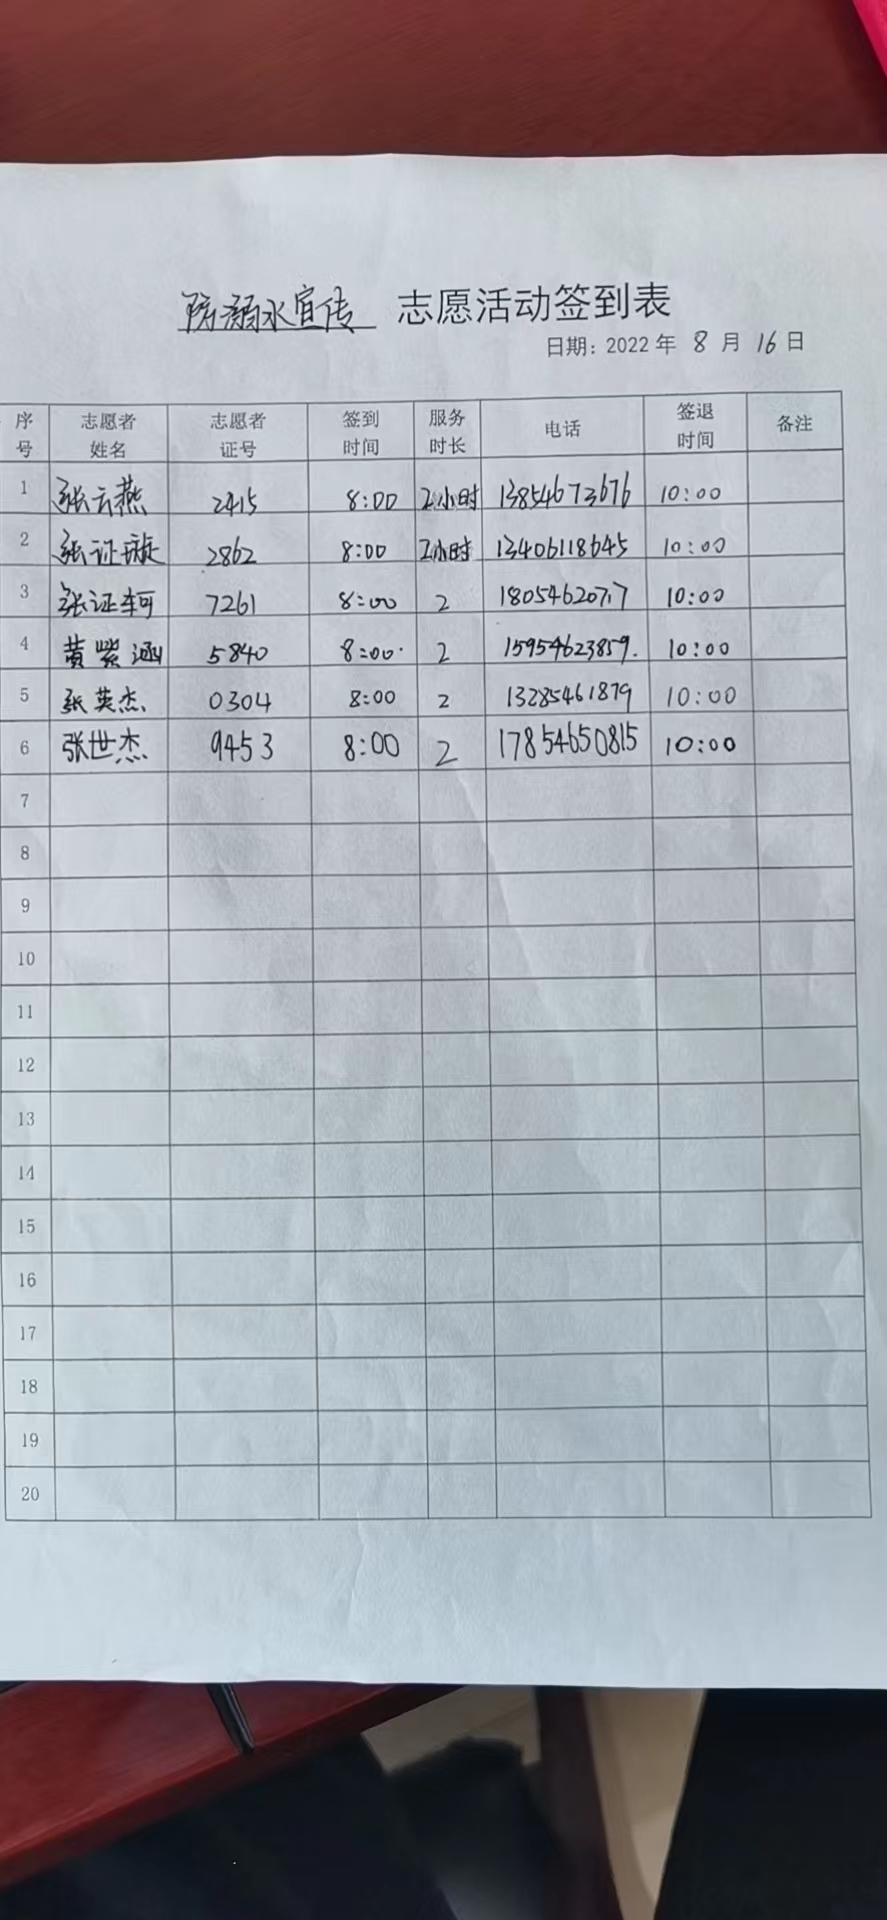 防溺水宣传 志愿活动签到表
日期：2022年 8 月 16 日
序号 志愿者姓名 志愿者证号 签到时间 服务时长 电话 签退时间 备注
1 张云燕 2415 8:00 2小时 13854673676 10:00
2 张证璇 2862 8:00 2小时 13406118645 10:00
3 张证轲 7261 8:00 2 10:00
4 黄紫涵 5840 8:00 2 15954623859 10:00
5 张英杰 0304 8:00 2 13285461879 10:00
6 张世杰 9453 8:00 2 17854650815 10:00
7
8
9
10
11
12
13
14
15
16
17
18
19
20